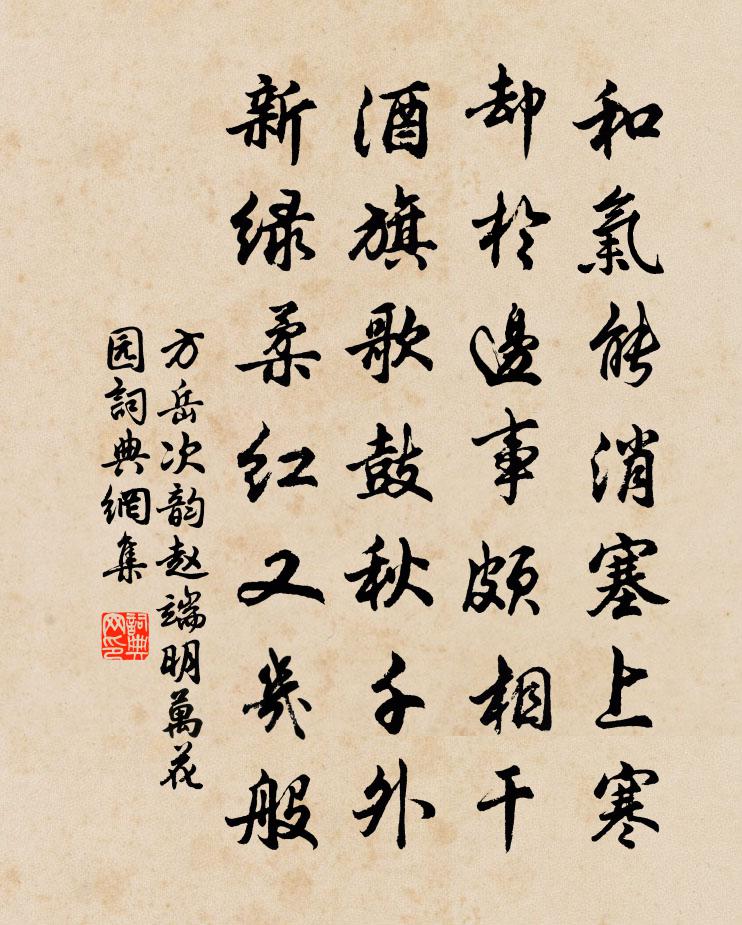 和氣能消塞上寒
却於邊事頗相干
酒旗歌鼓秋千外
新绿柔红又幾般
方岳次韵赵端明萬花
园詞典網集
詞典网印